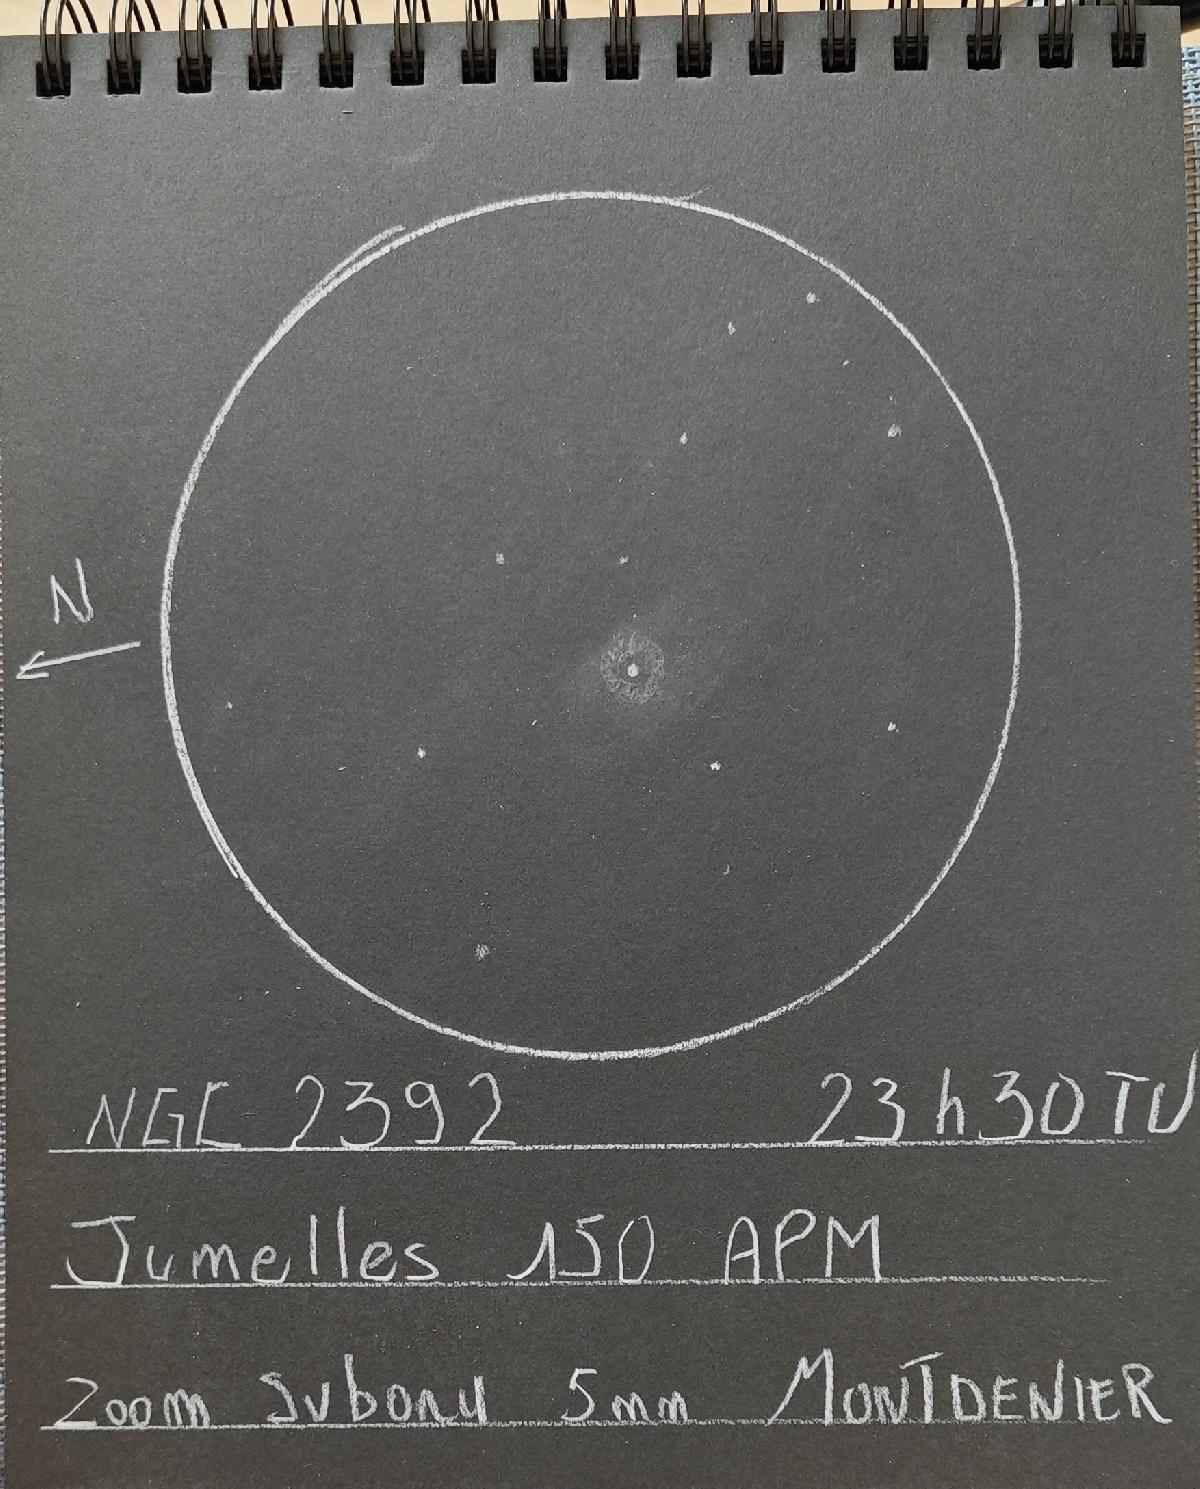 N
NGC 2392 23h30TU
Jumelles 150 APM
Zoom Svbony 5mm MONTDENIER